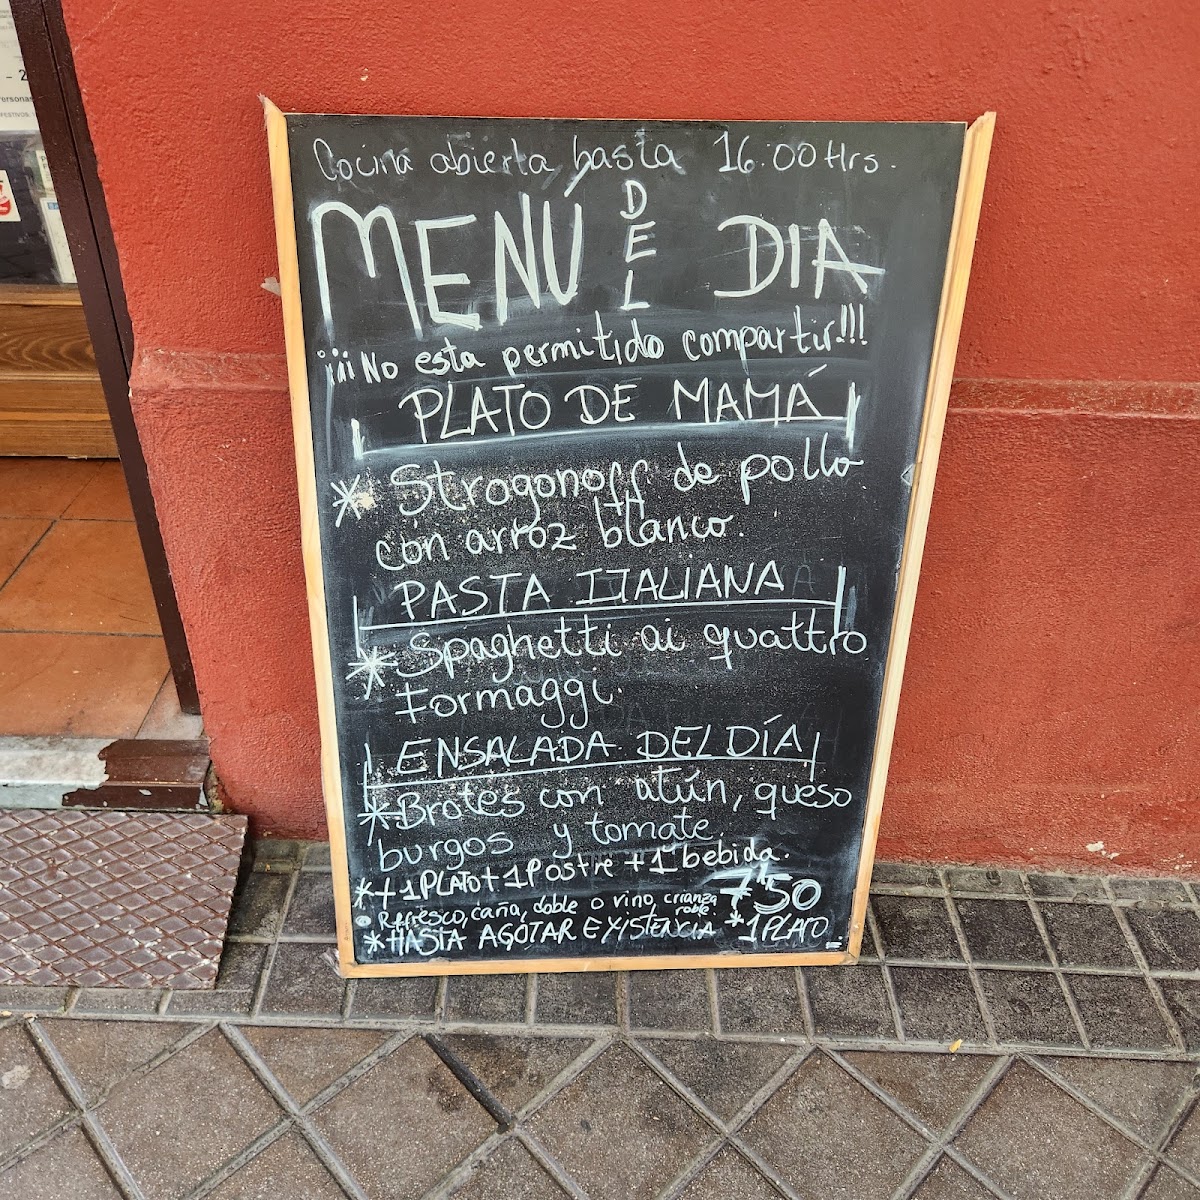 - 2
Personas
Cocina abierta hasta 16:00 Hrs.
MENÚ DEL DIA
¡¡¡No esta permitido compartir!!!
PLATO DE MAMÁ
* Strogonoff de pollo
con arroz blanco.
PASTA ITALIANA
* Spaghetti ai quattro
formaggi.
ENSALADA DEL DÍA
* Brotes con atún, queso
burgos y tomate.
* + 1 PLATO + 1 Postre + 1ª bebida.
7'50
• Refresco, caña, doble o vino, crianza
roble.
* HASTA AGOTAR EXISTENCIA * 1 PLATO